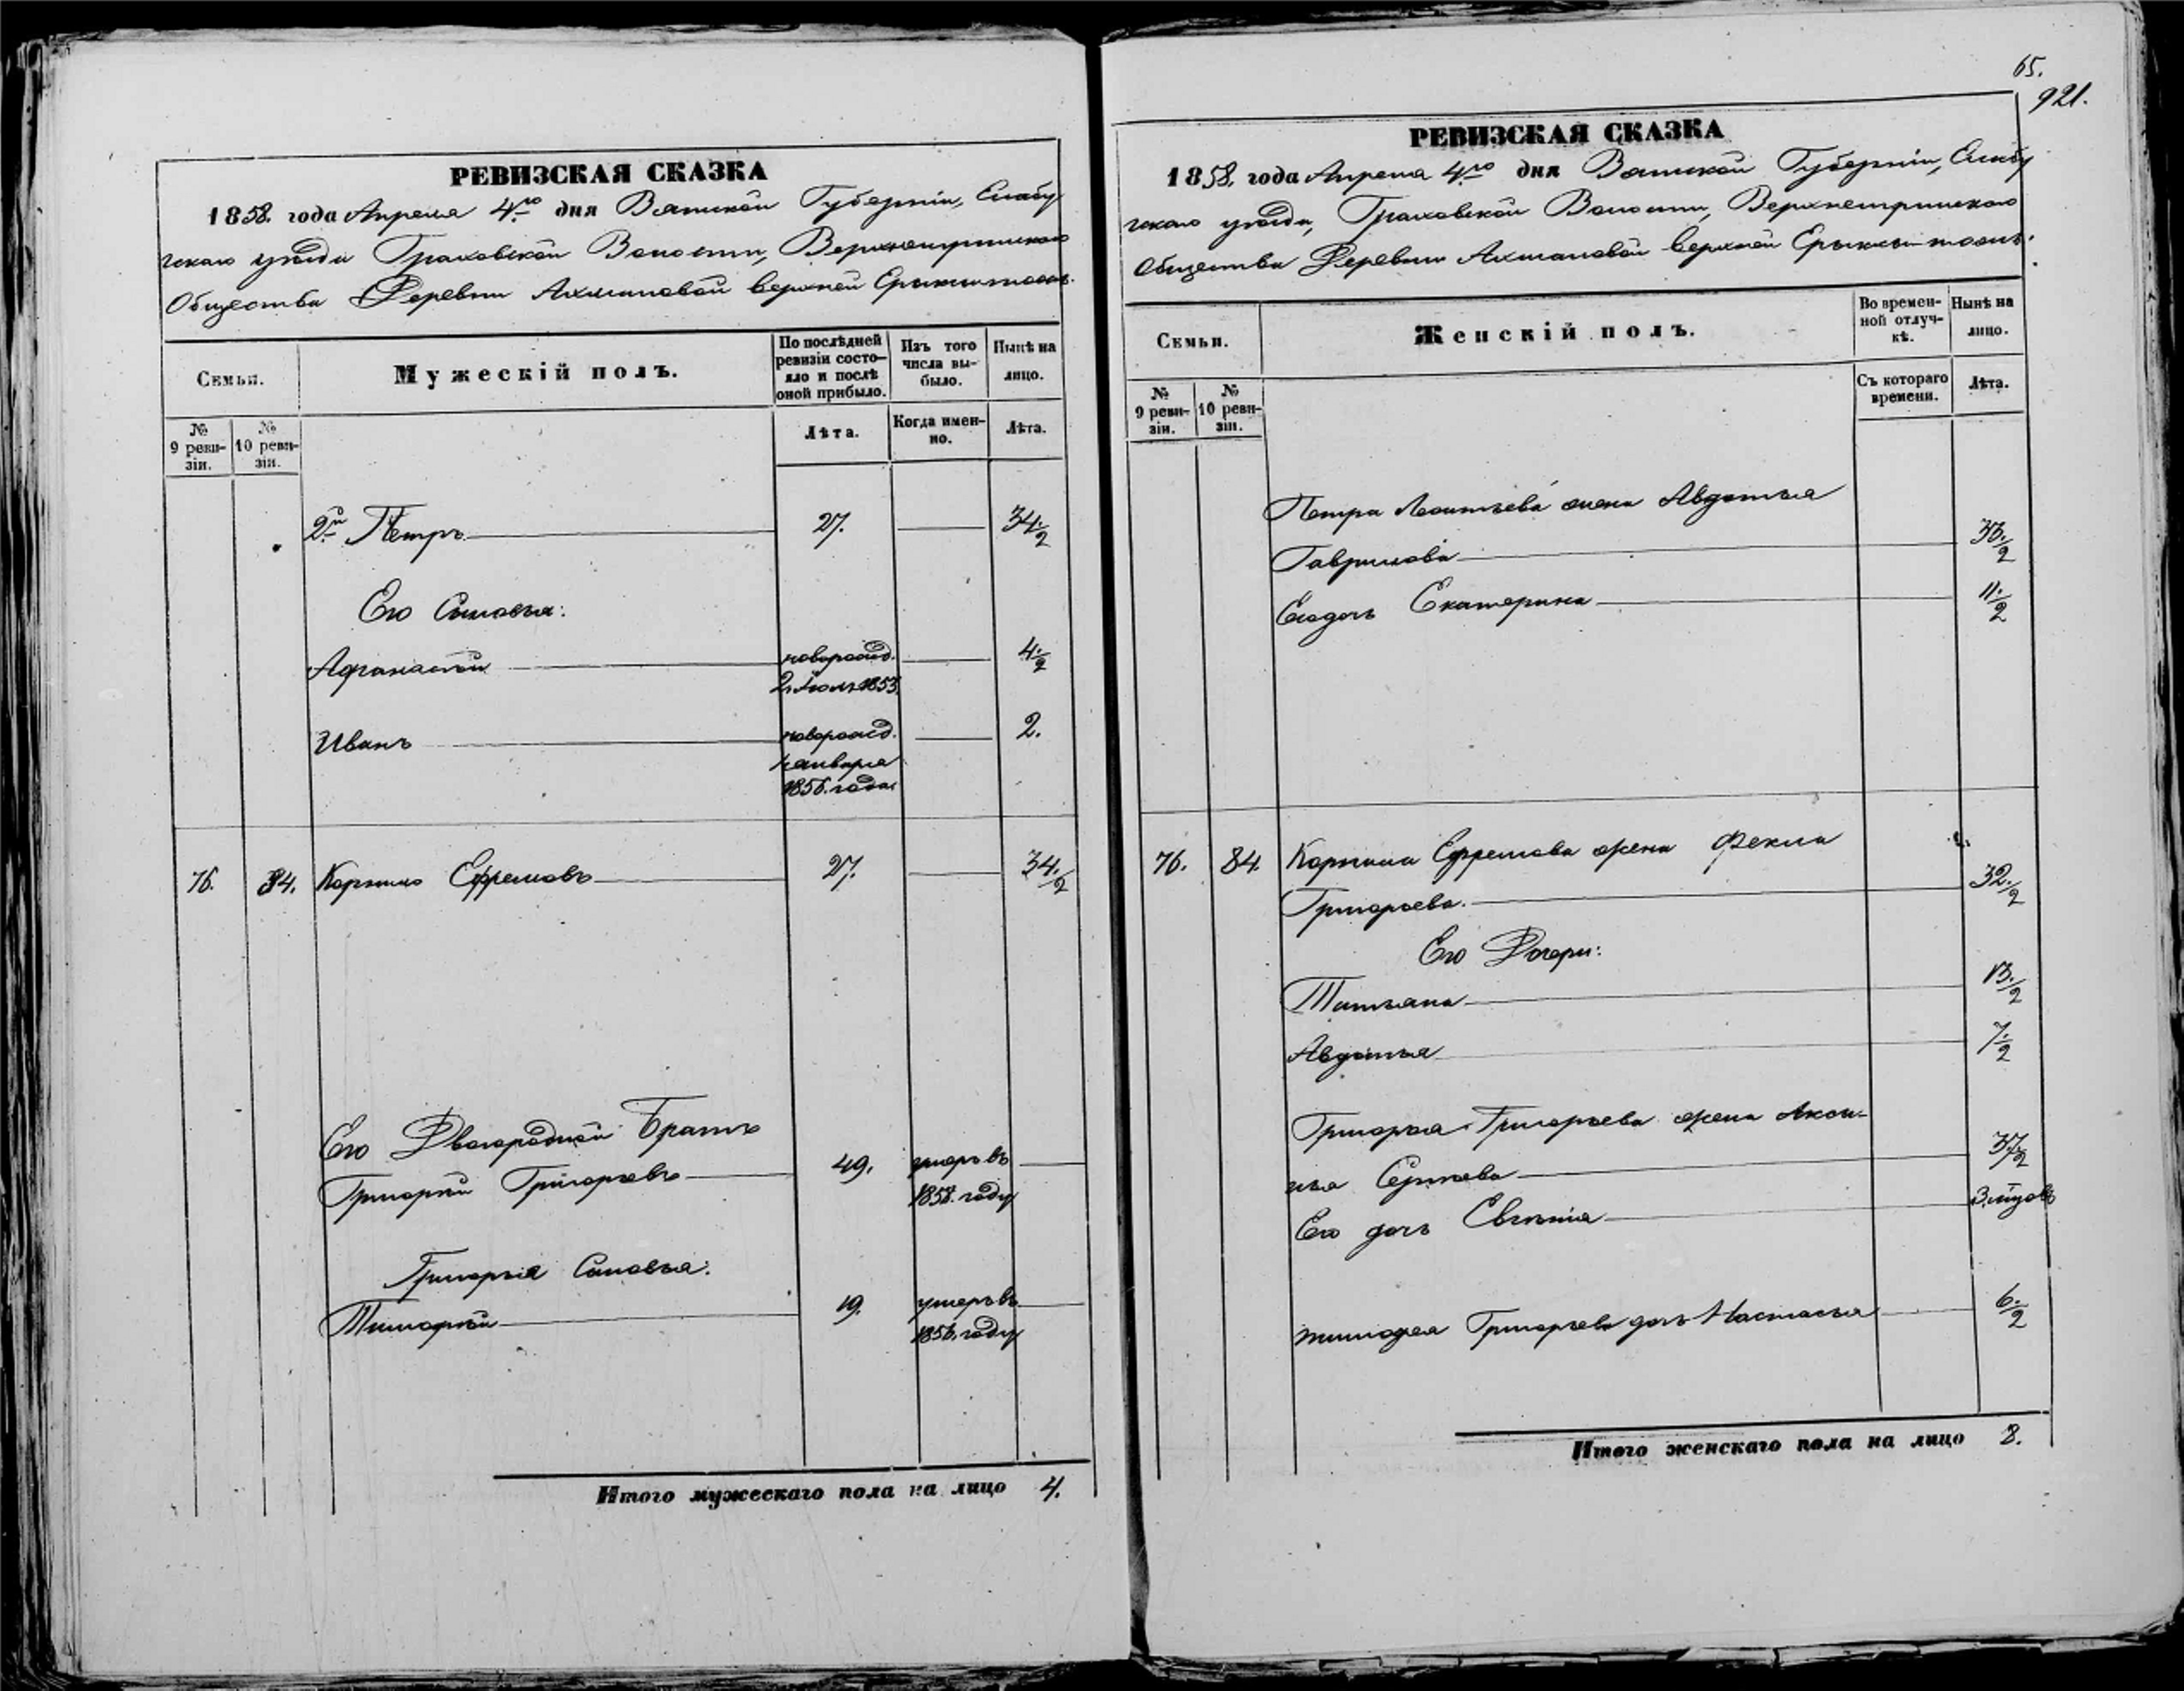 РЕВИЗСКАЯ СКАЗКА
1858. года Апреля 4го дня Вятской Губерніи, Елабу
гскаго уѣзда Граховской Волости,
Общества Деревни Ахмановой верхней
Семьи.
Мужескій полъ.
По послѣдней ревизіи состо-
яло и послѣ
оной прибыло.
Изъ того
числа вы-
было.
Нынѣ на
лицо.
№
9 реви-
зіи.
№
10 реви-
зіи.
Лѣта.
Когда имен-
но.
Лѣта.
2й Петръ 27. 34.1/2
Его Сыновья:
Афанасій новорожд. 4.1/2
2. Іюля 1853.
Иванъ новорожд. 2.
января
1856. года
76. 84. Корнило Ефремовъ 27. 34.1/2
Его Двоюродной Братъ
Григорий Григорьевъ 49. умеръ въ
1858. году
Григорья Сыновья:
Тимофей 19. умеръ въ
1856. году
Итого мужескаго пола на лицо 4.
65.
921.
РЕВИЗСКАЯ СКАЗКА
1858. года Апреля 4го дня Вятской Губерніи, Елабу
гскаго уѣзда, Граховской Волости,
Общества Деревни Ахмановой верхней
Семьи.
Женскій полъ.
Во времен-
ной отлуч-
кѣ.
Нынѣ на
лицо.
№
9 реви-
зіи.
№
10 реви-
зіи.
Съ котораго
времени.
Лѣта.
Петра Леонтьева жена Авдотья
Гаврилова 33.1/2
Его дочь Екатерина 11.1/2
76. 84. Корнила Ефремова жена Фекла
Григорьева. 32.1/2
Его Дочери:
Татьяна 13.1/2
Авдотья 7.1/2
Григорья Григорьева жена Акси-
нья Сергѣева 37.1/2
Его дочь Евгенія
Тимофея Григорьева дочь Настасья 6.1/2
Итого женскаго пола на лицо 8.